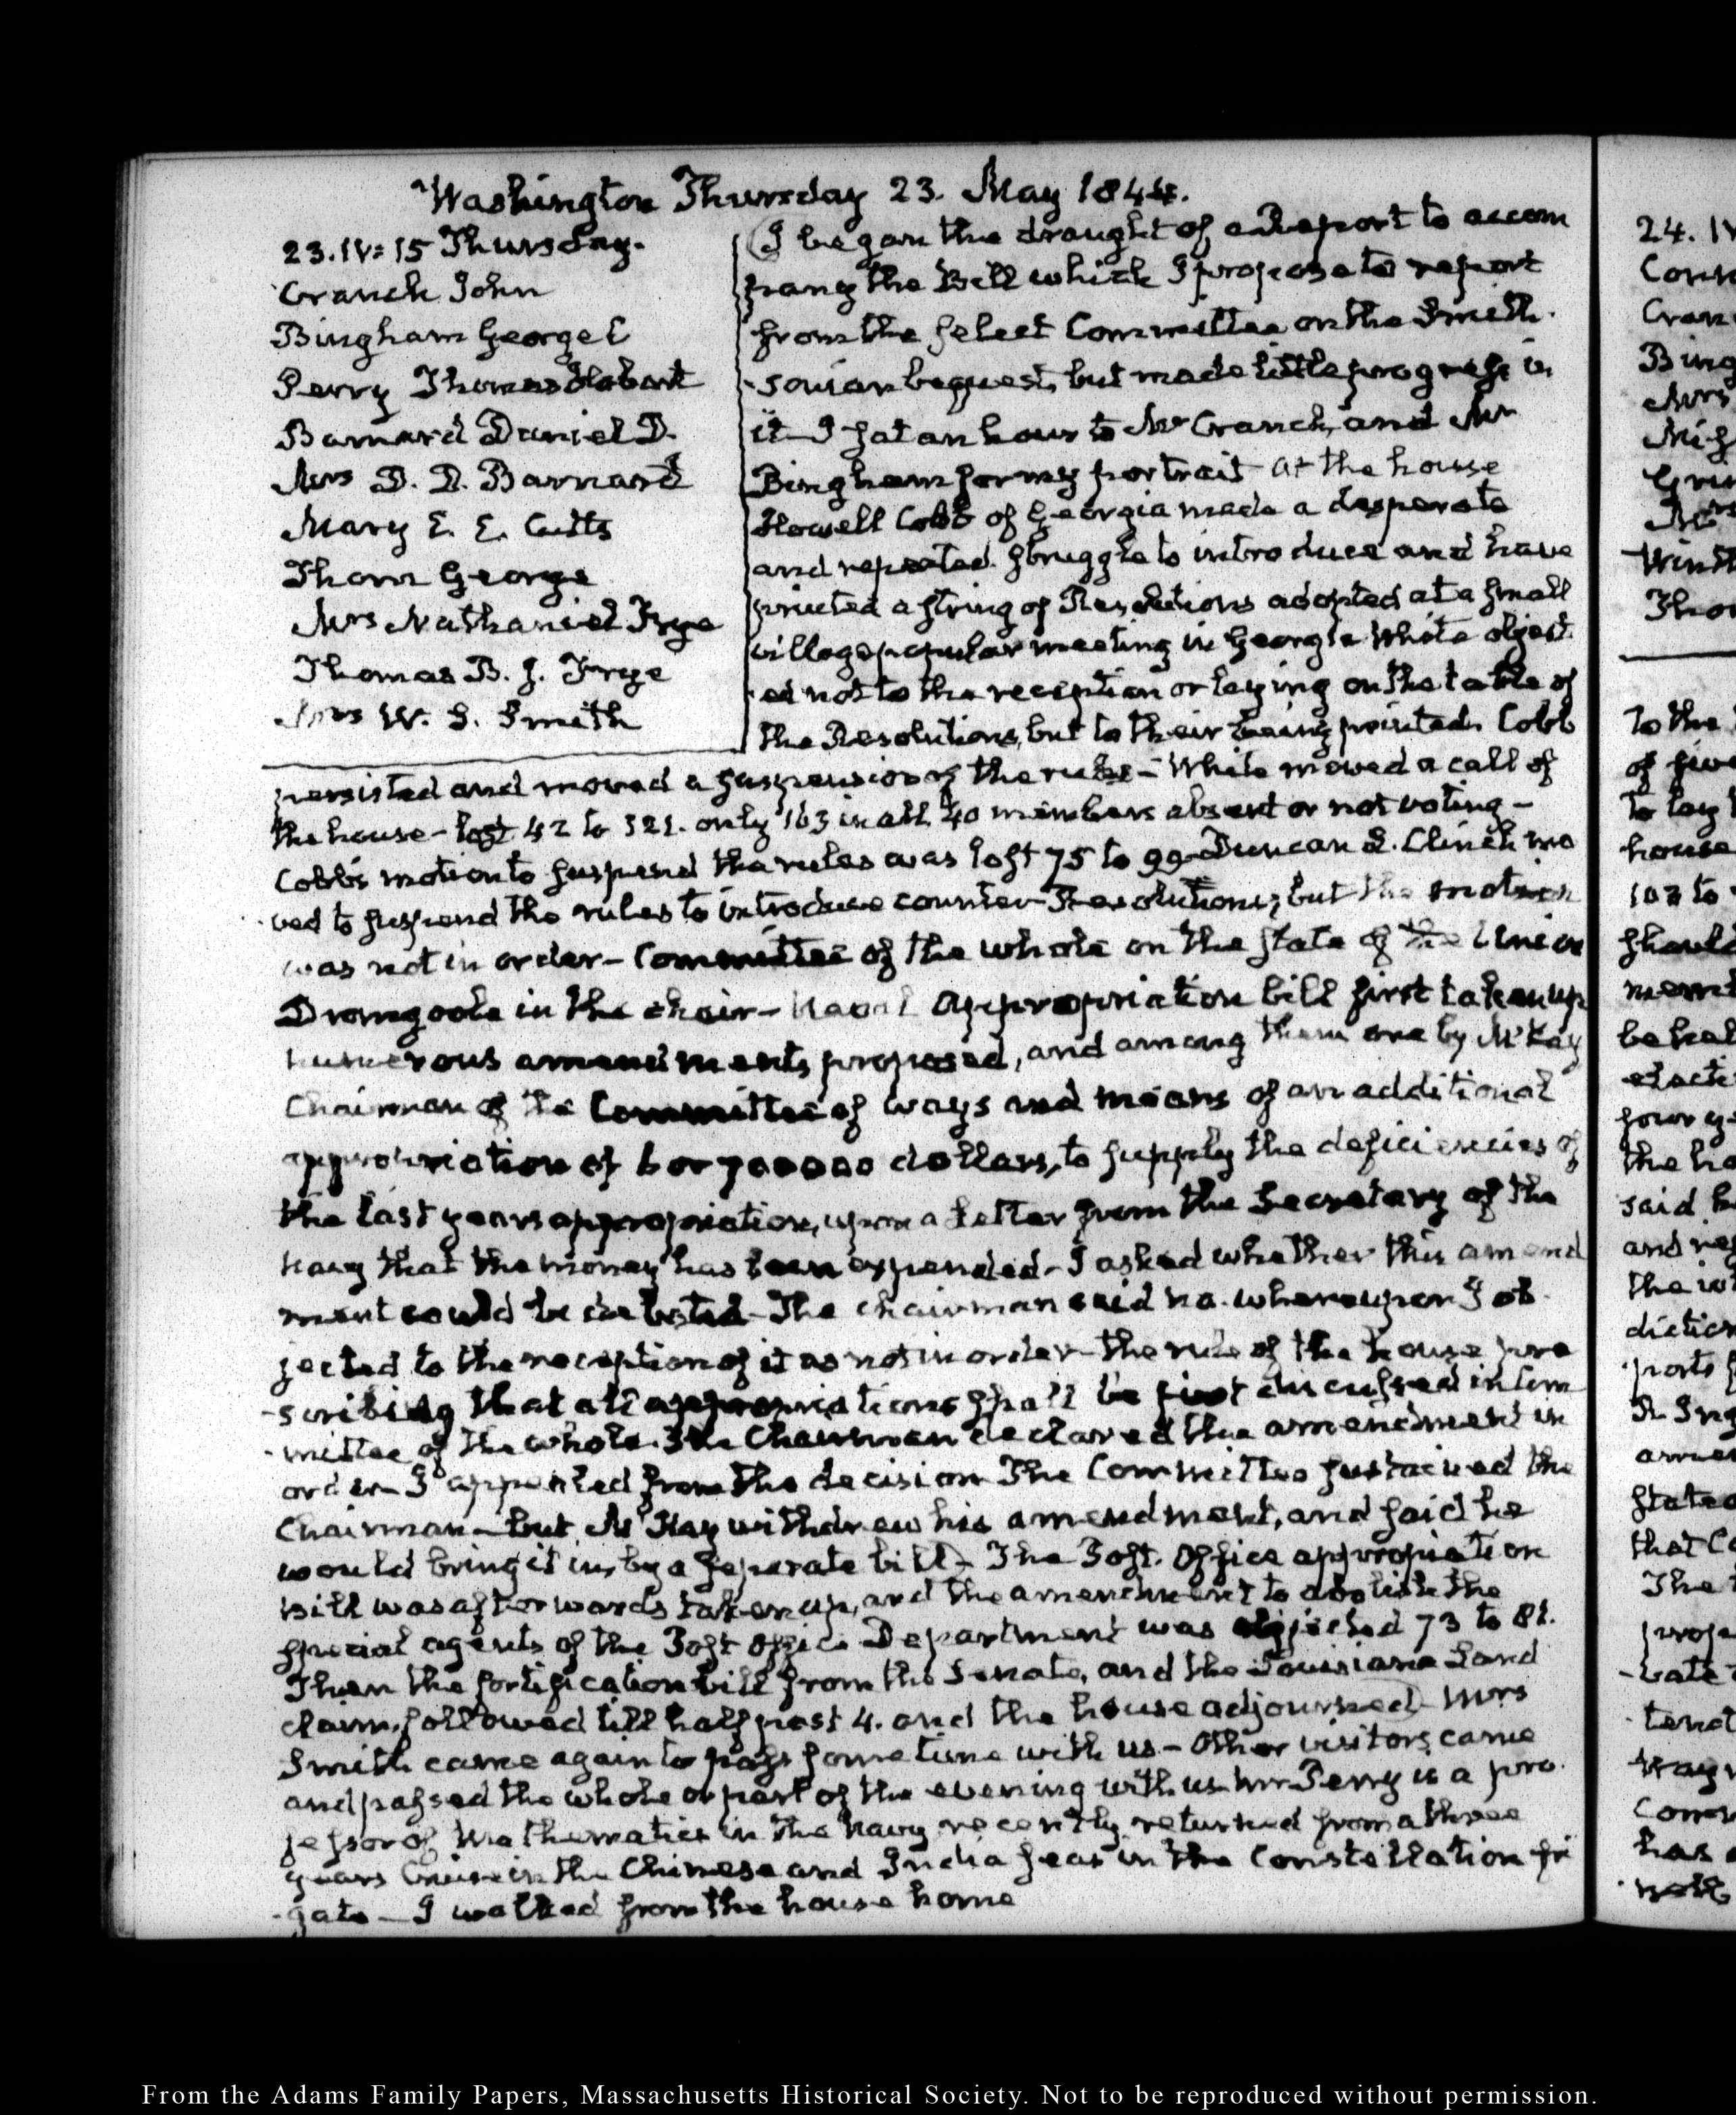 Washington Thursday 23. May 1844.
23. IV: 15 Thursday.
Cranch John
Bingham George C
Perry Thomas Hobart
Barnard Daniel D.
Mrs D. D. Barnard
Mary E. E. Cutts
Thom George
Mrs Nathaniel Frye
Thomas B. J. Frye
Mrs W. S. Smith
I began the draught of a Report to accom
pany the Bill which I propose to report
from the Select Committee on the Smith-
-sonian bequest, but made little progress in
it— I sat an hour to Mr Cranch, and Mr
Bingham for my portrait— At the house
Howell Cobb of Georgia made a desperate
and repeated struggle to introduce and have
printed a string of Resolutions adopted at a small
village popular meeting in Georgia White object
-ed not to the reception or laying on the table of
the Resolutions, but to their being printed. Cobb
persisted and moved a suspension of the rules— White moved a call of
the house— lost 42 to 121. only 163 in all 40 members absent or not voting—
Cobb's motion to suspend the rules was lost 75 to 99— Duncan L. Clinch mo
ved to suspend the rules to introduce counter-Resolutions; but the motion
was not in order— Committee of the whole on the State of the Union
Dromgoole in the chair— Naval appropriation bill first taken up
numerous amendments proposed, and among them one by McKay
Chairman of the Committee of ways and means of an additional
appropriation of 6 or 700000 dollars, to supply the deficiencies of
the last years appropriation, upon a Letter from the Secretary of the
Navy that the money has been expended— I asked whether this amend
ment could be debated— The chairman said no. whereupon I ob-
jected to the reception of it as not in order— the rule of the house pre
-scribing that all appropriations shall be first discussed in Com
-mittee of the whole. The Chairman declared the amendment in
order— I appealed from the decision The Committee sustained the
Chairman— but McKay withdrew his amendment, and said he
would bring it in, by a separate bill— The Post Office appropriation
bill was afterwards taken up, and the amendment to abolish the
special agents of the Post Office Department was rejected 73 to 81.
Then the fortification bill from the Senate, and the Louisiana Land
claim, followed till half past 4. and the house adjourned— Mrs
Smith came again to pass some time with us— Other visitors came
and passed the whole or part of the evening with us. Mr Perry is a pro-
fessor of Mathematics in the Navy recently returned from a three
years Cruise in the Chinese and India Seas in the Constellation fri
-gate— I walked from the house home
From the Adams Family Papers, Massachusetts Historical Society. Not to be reproduced without permission.